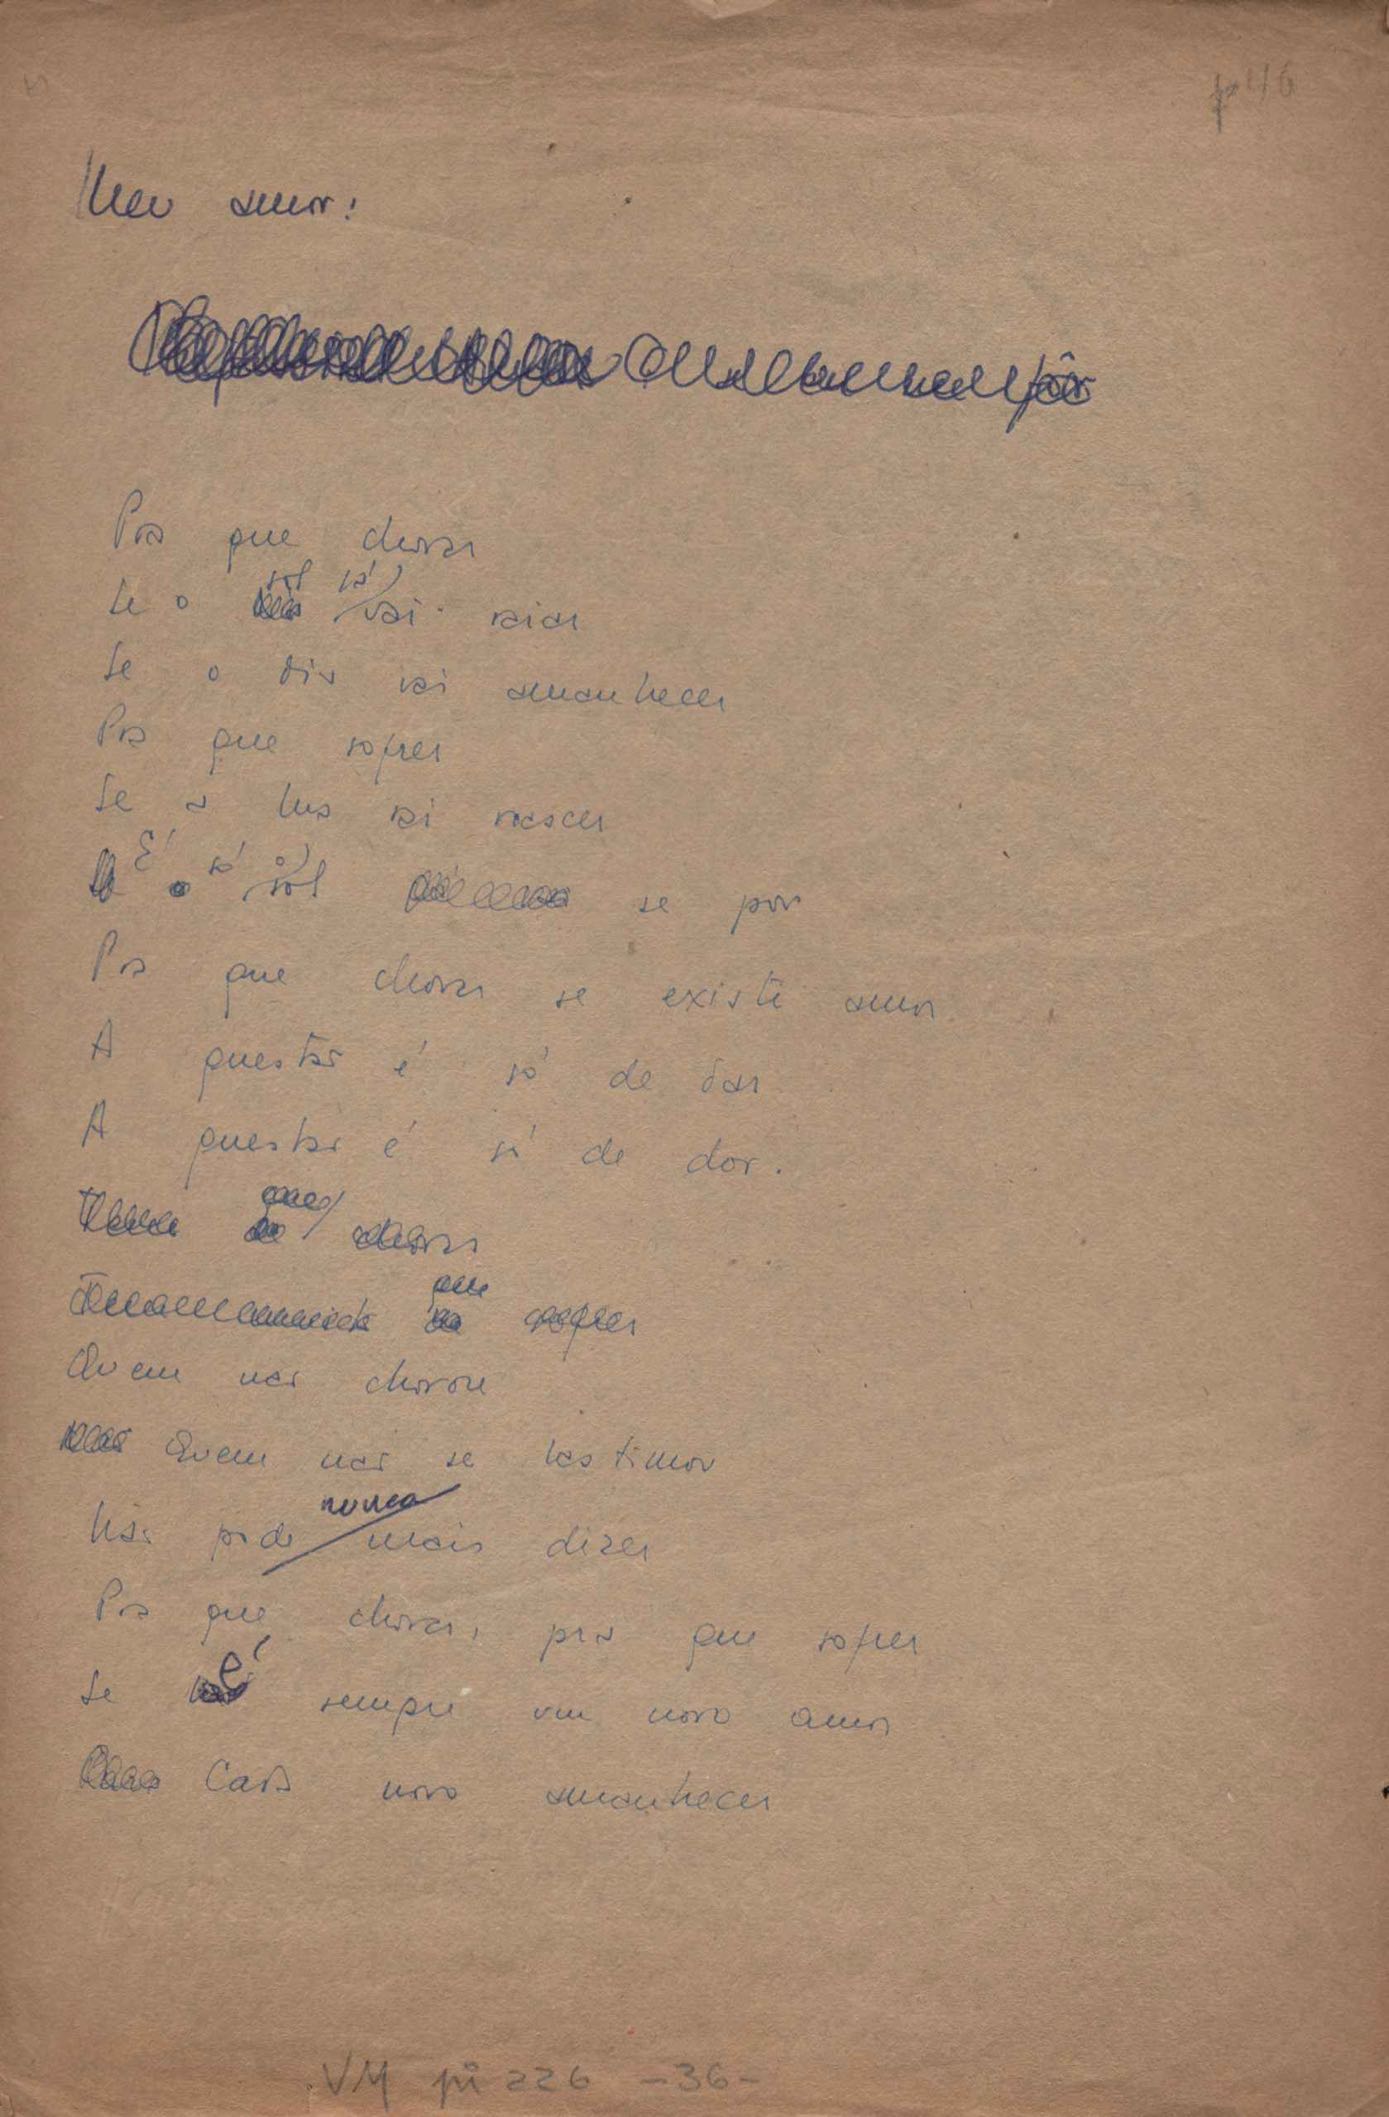 p 46
Meu amor:
Pra que chorar
Se o sol já vai raiar
Se o dia vai amanhecer
Pra que sofrer
Se a lua vai nascer
É só o sol se pôr
Pra que chorar se existe amor
A questão é só de dar
A questão é só de dor.
que chorar
que sofrer
Quem não chorou
Quem não se lastimou
Não pode nunca mais dizer
Pra que chorar, pra que sofrer
Se é sempre um novo amor
Cada novo amanhecer
VM pi 226 -36-